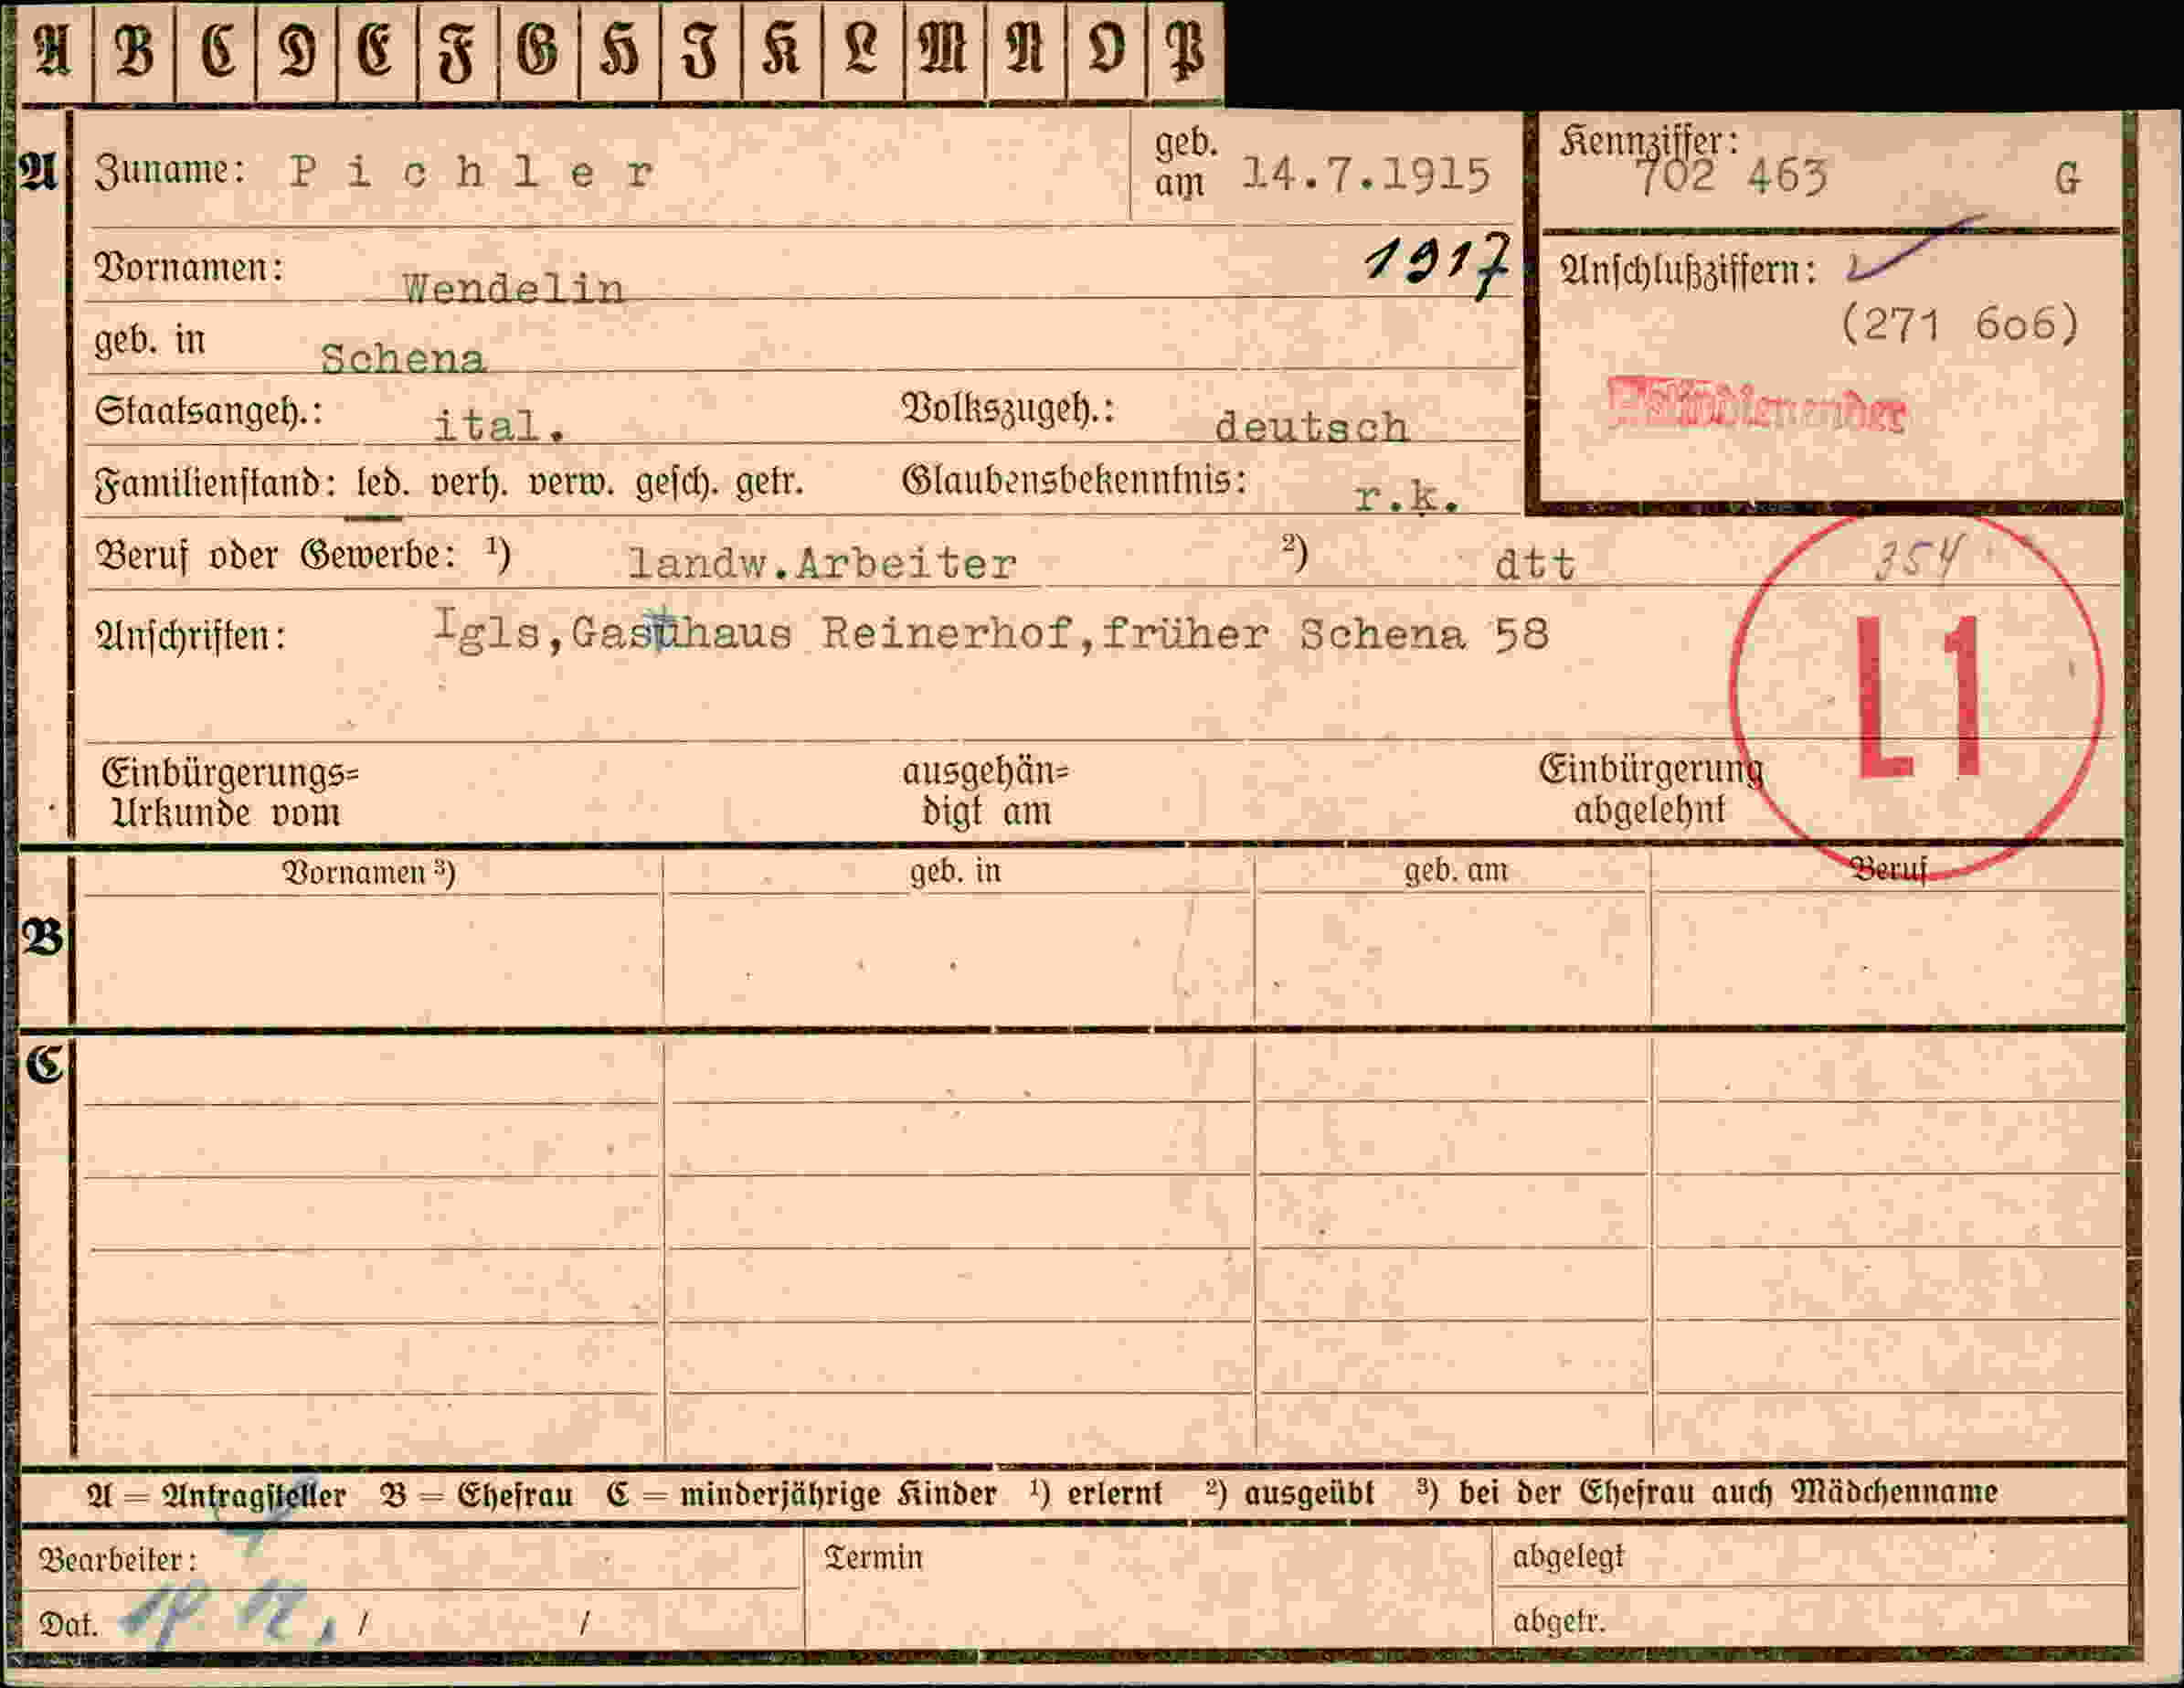 A B C D E F G H I K L M N O P
A Zuname: Pichler geb. am 14.7.1915 Kennziffer: 702 463 G
Vornamen: Wendelin 1917 Anschlußziffern:
(271 606)
geb. in Schena
Staatsangeh.: ital. Volkszugeh.: deutsch
Familienstand: led. verh. verw. gesch. getr. Glaubensbekenntnis: r.k.
Beruf oder Gewerbe: ¹) landw.Arbeiter ²) dtt 354
Anschriften: Igls,Gasthaus Reinerhof,früher Schena 58
L1
Einbürgerungs= ausgehän= Einbürgerung
Urkunde vom digt am abgelehnt
Vornamen ³) geb. in geb. am Beruf
B
C
A = Antragsteller B = Ehefrau C = minderjährige Kinder ¹) erlernt ²) ausgeübt ³) bei der Ehefrau auch Mädchenname
Bearbeiter: Termin abgelegt
Dat. / / abgetr.